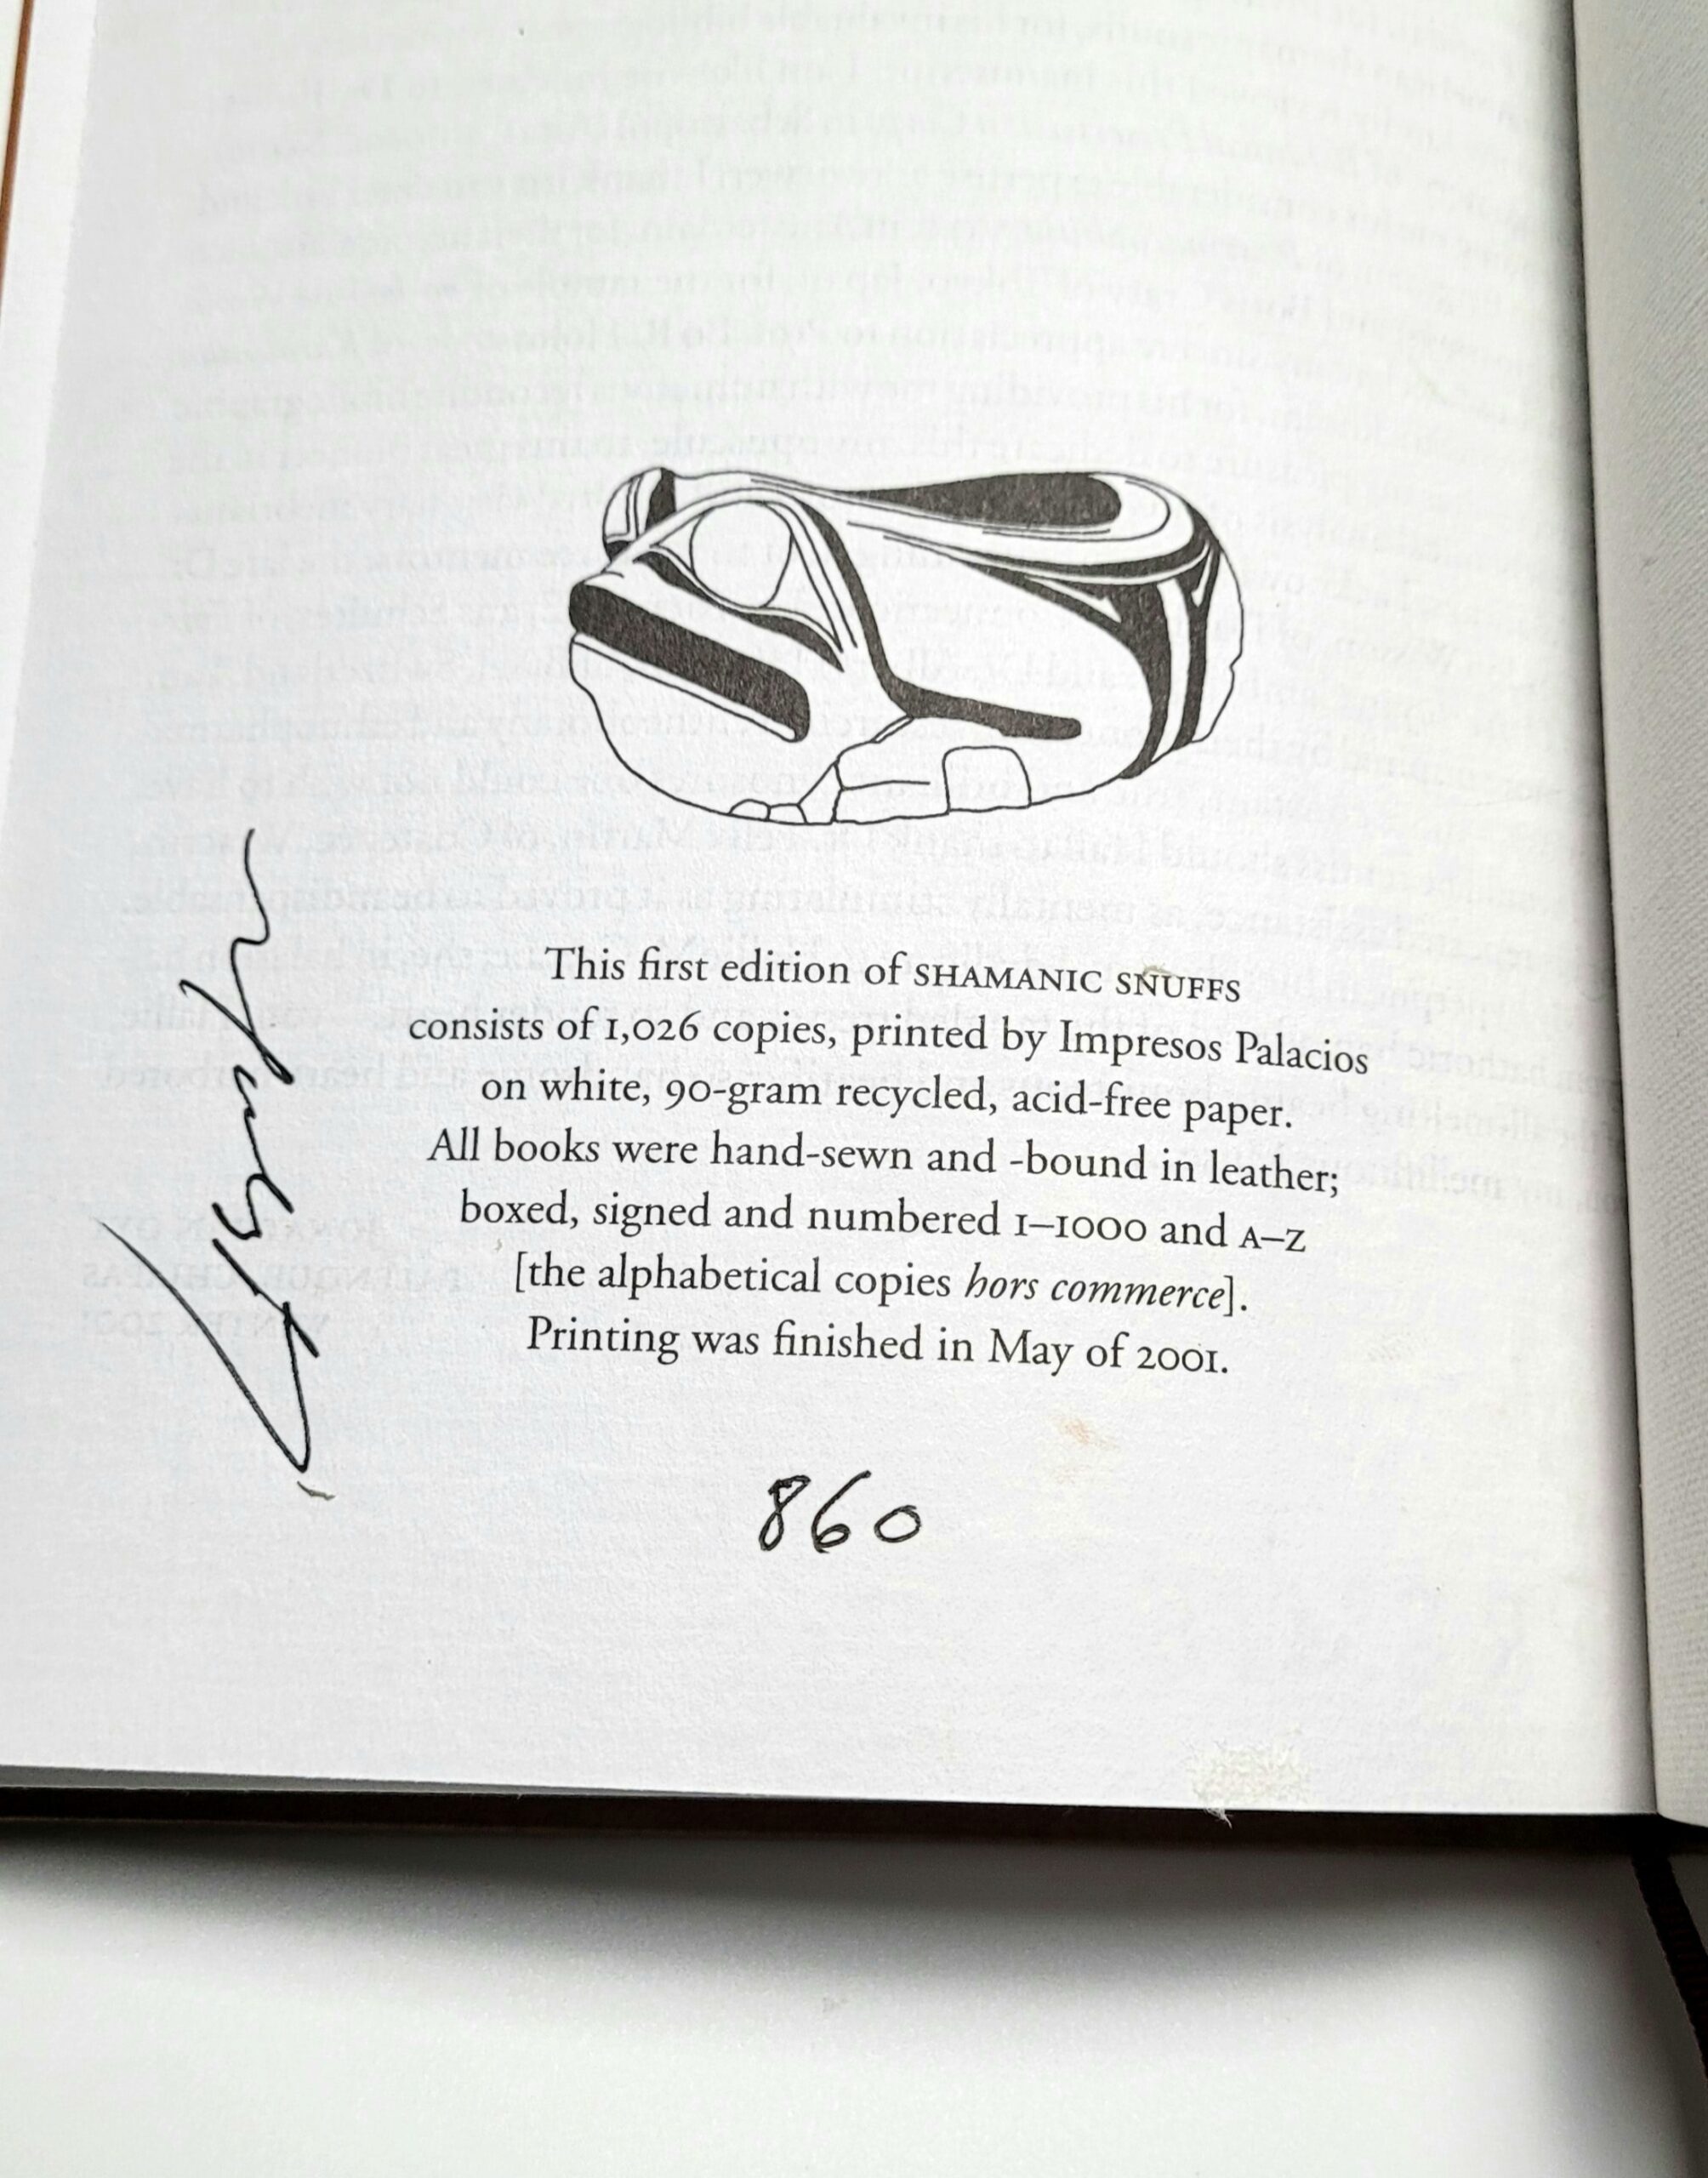 This first edition of SHAMANIC SNUFFS
consists of 1,026 copies, printed by Impresos Palacios
on white, 90-gram recycled, acid-free paper.
All books were hand-sewn and -bound in leather;
boxed, signed and numbered 1–1000 and A–Z
[the alphabetical copies hors commerce].
Printing was finished in May of 2001.
860